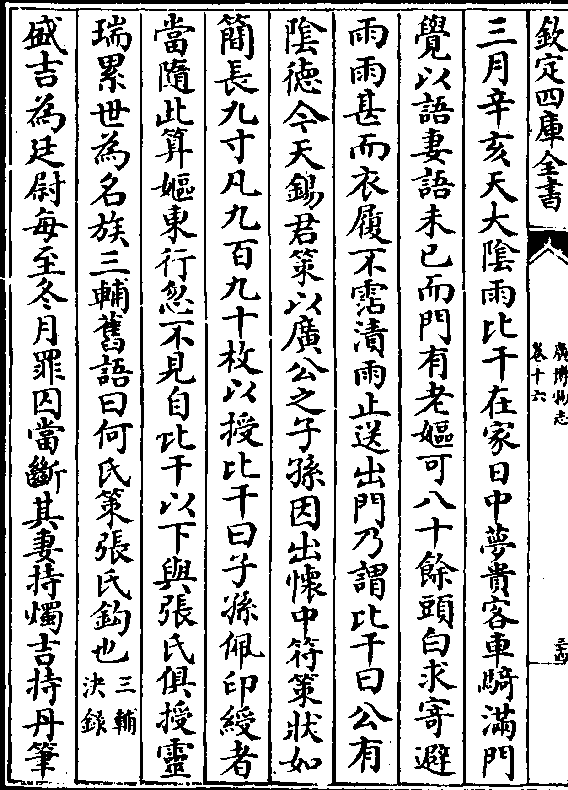 欽定四庫全書
廣博物志
卷十六
三月辛亥天大陰雨比干在家日中夢貴客車騎滿門
覺以語妻語未已而門有老嫗可八十餘頭白求寄避
雨雨甚而衣履不霑漬雨止送出門乃謂比干曰公有
陰德今天錫君策以廣公之子孫因出懷中符策狀如
簡長九寸凡九百九十枚以授比干曰子孫佩印綬者
當隨此算嫗東行忽不見自比干以下與張氏俱授靈
瑞累世為名族三輔舊語曰何氏策張氏鈎也三輔決錄
盛吉為廷尉每至冬月罪囚當斷其妻持燭吉持丹筆